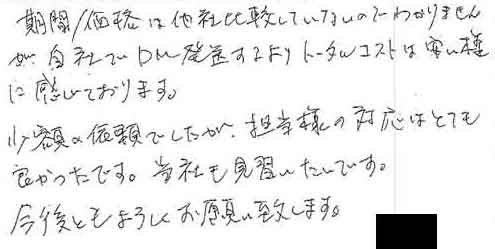 期間/価格は他社比較していないのでわかりません
が、自社でDM発送するよりトータルコストは安い様
に感じております。
少額の依頼でしたが、担当様の対応はとても
良かったです。当社も見習いたいです。
今後ともよろしくお願い致します。